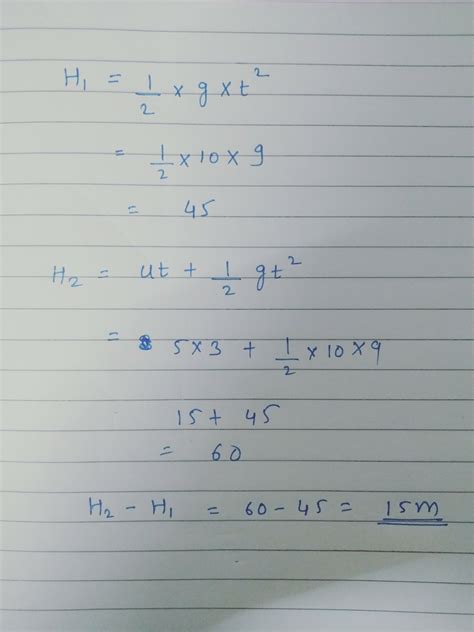 H₁ = 1/2 × g × t²
= 1/2 × 10 × 9
= 45
H₂ = ut + 1/2 gt²
= 5×3 + 1/2 × 10 × 9
15 + 45
= 60
H₂ - H₁ = 60 - 45 = 15m